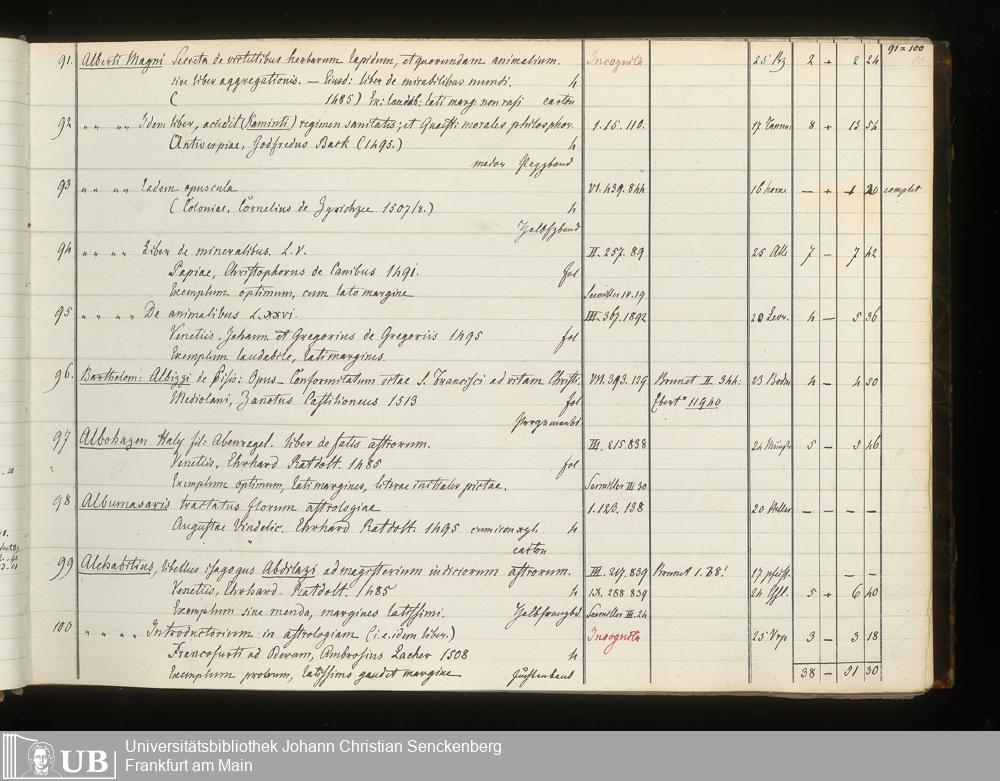 91 = 100
91. Alberti Magni Secreta de virtutibus herbarum lapidum, et quorundam animalium. Incognita 25 2 + 2 24
sive liber aggregationis. — Ejusd: liber de mirabilibus mundi. 4
( 1485) Ex: laudab: lati marg: non rasi carton
92 " " " " Idem liber, accedit (Kaminti) regimen sanitatis; et Quaest: morales philosophor. 1. 15. 110. 17 8 + 13 54
Antwerpiae, Godfredus Back (1495.) 4
93 " " " " Eadem opuscula VI. 439. 844 16 horne — + 20 complet
(Coloniae, Cornelius de Zyrichzee 1507/8.) 4
94 " " " " Liber de mineralibus. L. V. II. 257. 89 25 7 — 7 42
Papiae, Christophorus de Canibus 1491. fol
Exemplum optimum, cum lato margine Seemiller IV. 19
95 " " " " De animalibus L. XXVI. III. 367. 1892 20 4 — 5 36
Venetiis, Johann et Gregorius de Gregoriis 1495 fol
Exemplum laudabile, lati margines.
96. Bartholom: Albizzi de Pisis: Opus Conformitatum vitae S. Francisci ad vitam Christi. VII. 393. 129 Brunet II. 344. 23 4 — 4 50
Mediolani, Zanotus Castilioneus 1513 fol Ebert 11940.
Pergament
97 Albohazen Haly fil: Abenragel. liber de fatis astrorum. III. 215. 838 24 5 — 5 46
Venetiis, Ehrhard Ratdolt. 1485 fol
Exemplum optimum, lati margines, literae initiales pictae. Seemiller III. 30
98 Albumasaris tractatus florum astrologiae 1. 123. 138 20 Heller — — — —
Augustae Vindelic. Ehrhard Ratdolt. 1495 cum icon xyl. 4
carton
99 Alchabitius, libellus isagogus Abdilazi ad magisterium iudiciorum astrorum. III. 217. 839 Brunet 1. 17 — —
Venetiis, Ehrhard. Ratdolt. 1485 4 IX. 288 839 24 5 + 6 40
Exemplum sine menda, margines latissimi. Halbfranzbd. Seemiller III. 24
100 " " " " Introductorium in astrologiam (i.e. idem liber.) Incognita 25 3 — 3 18
Francofurti ad Oderam, Ambrosius Lacher 1508 4
Exemplum probum, latissimo gaudet margine 38 — 51 30
UB
Universitätsbibliothek Johann Christian Senckenberg
Frankfurt am Main